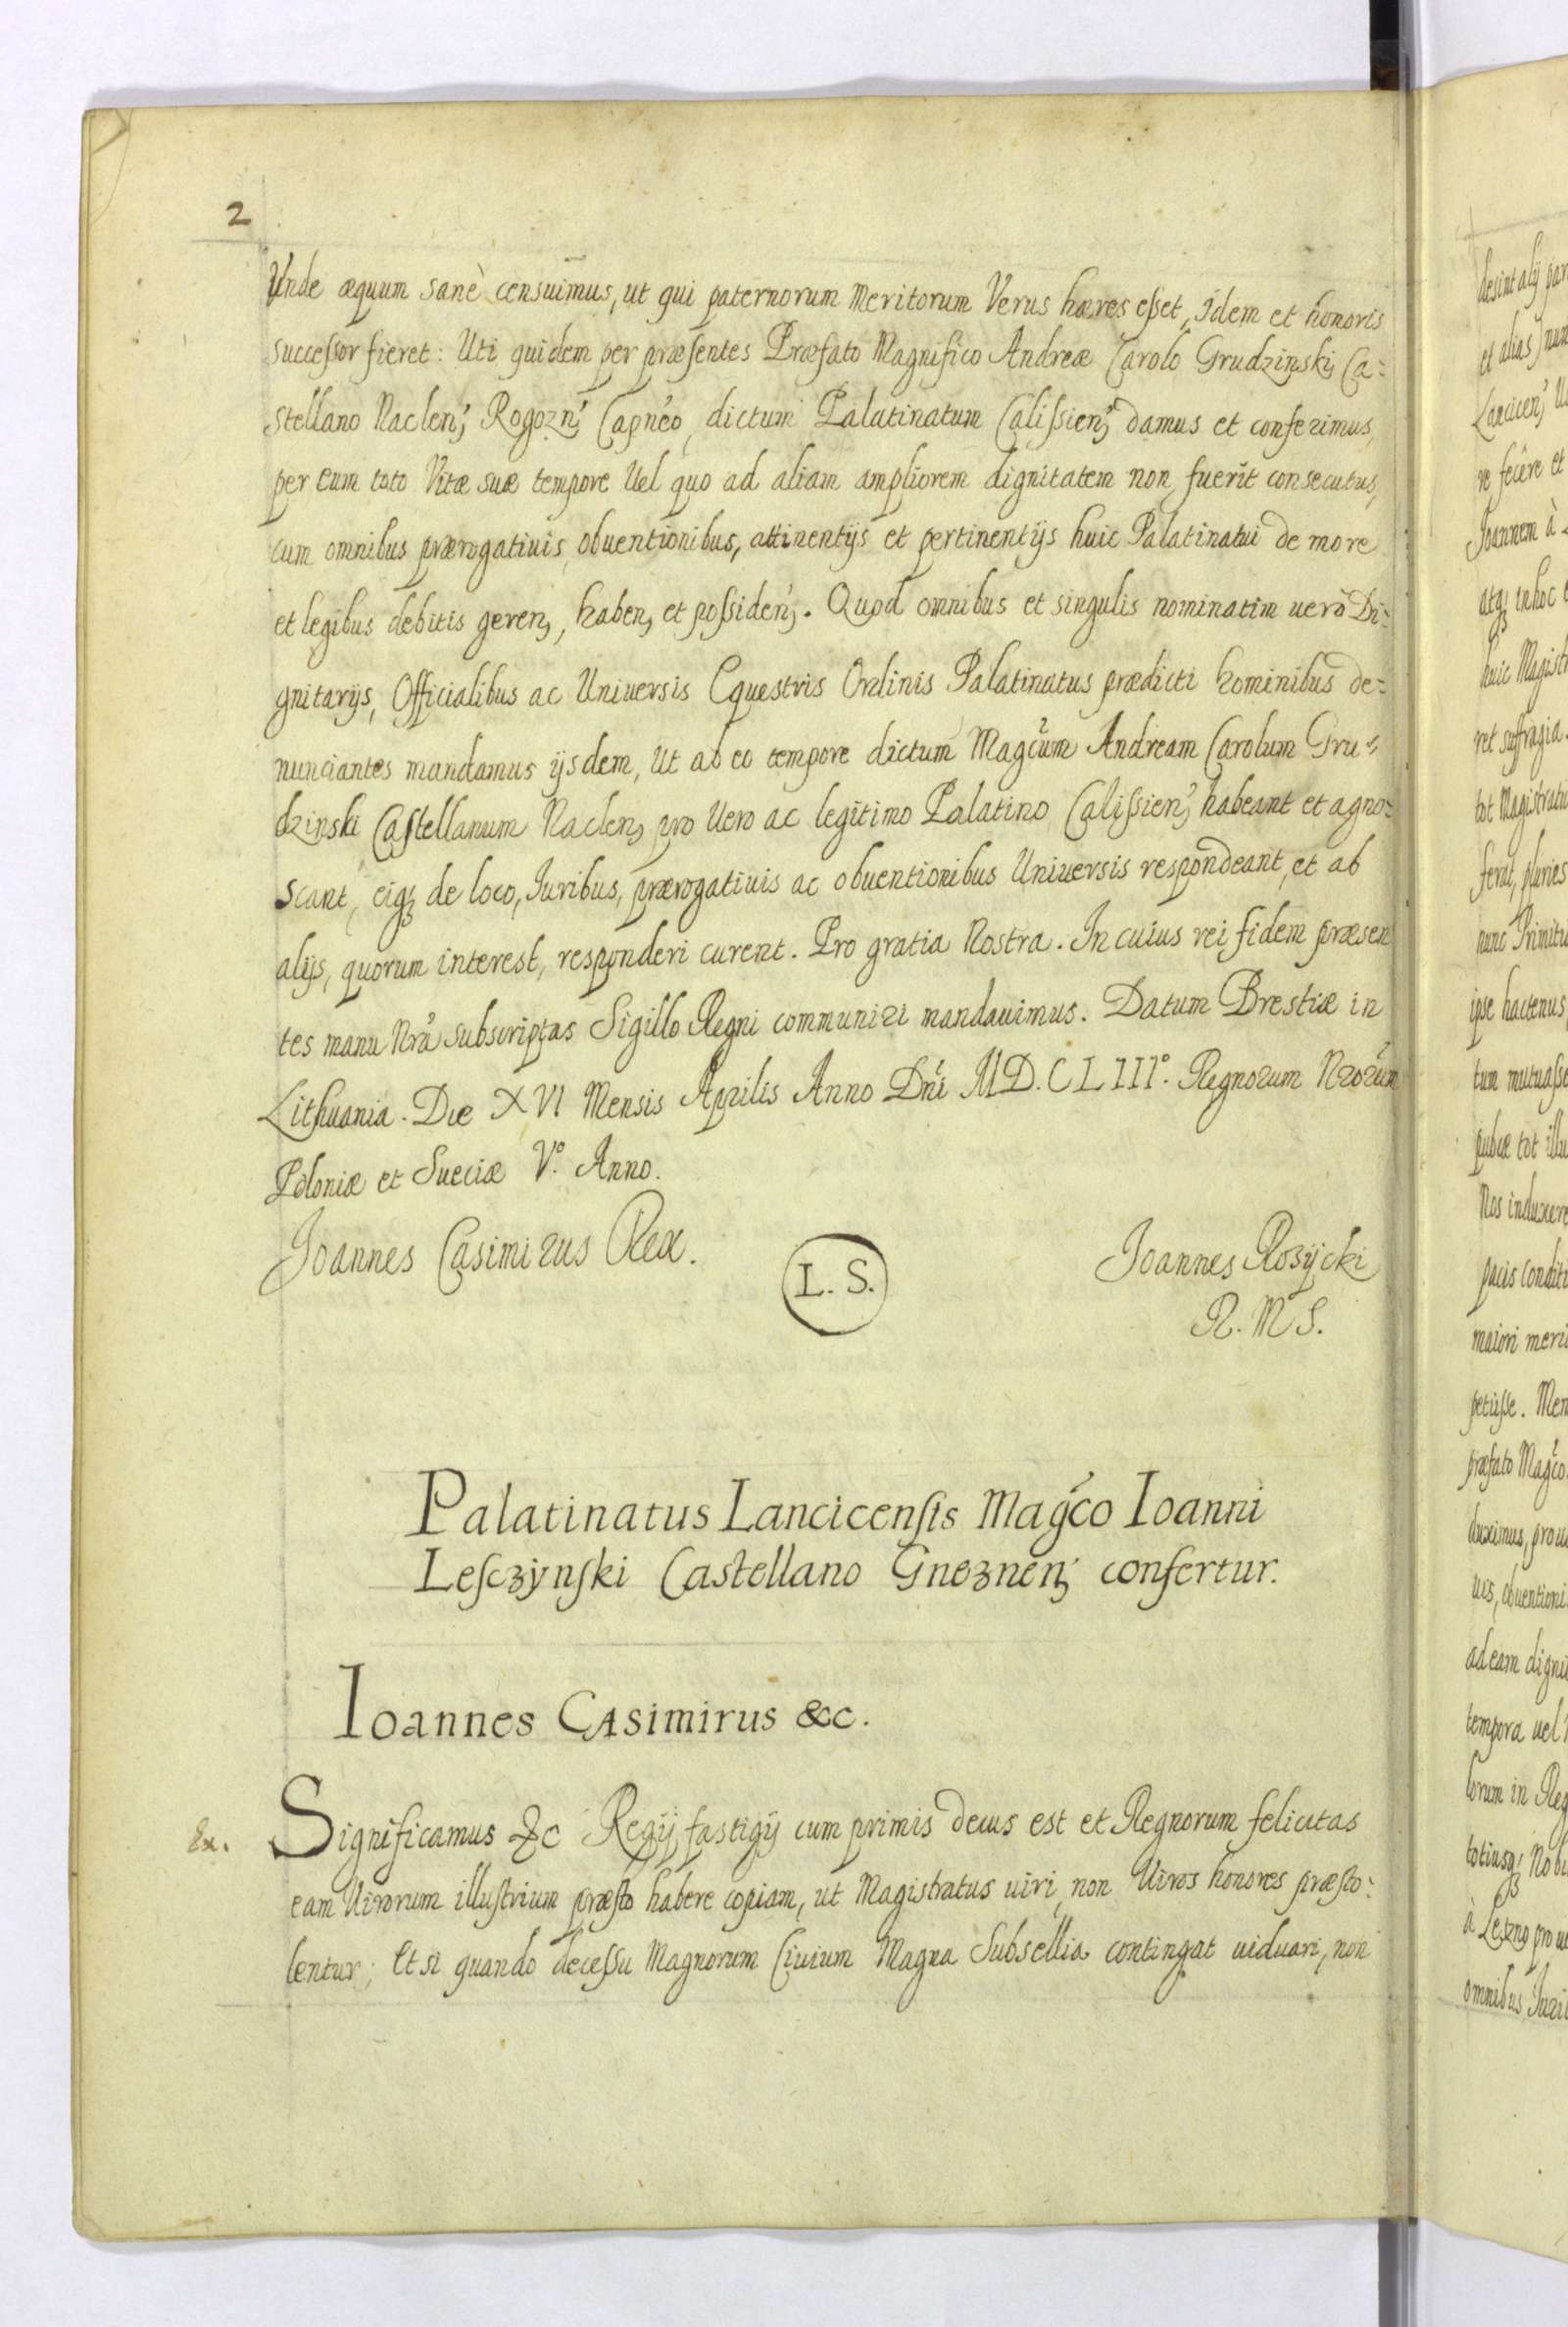 2
Unde æquum sanè censuimus, ut qui paternorum meritorum Verus hæres esset, idem et honoris
successor fieret: Uti quidem per præsentes Præfato Magnifico Andreæ Carolo Grudzinski Ca=
stellano Naclen; Rogozn; Capn'eo, dictum Palatinatum Calissien; damus et conferimus,
per eum toto Vitæ suæ tempore Vel quo ad aliam ampliorem dignitatem non fuerit consecutus,
cum omnibus prærogativis obuentionibus, attinentijs et pertinentijs huic Palatinatui de more
et legibus debitis geren; haben; et possiden;. Quod omnibus et singulis nominatim uerò Di=
gnitarijs, Officialibus ac Universis Equestris Ordinis Palatinatus prædicti hominibus de=
nunciantes mandamus ijsdem, Ut ab eo tempore dictum Magcum Andream Carolum Gru=
dzinski Castellanum Naclen; pro Vero ac legitimo Palatino Calissien; habeant et agno=
scant, eiq; de loco, Iuribus, prærogatiuis ac obuentionibus Universis respondeant, et ab
alijs, quorum interest, responderi curent. Pro gratia Nostra. In cuius rei fidem præsen
tes manu Nrâ subscriptas Sigillo Regni communiri mandauimus. Datum Brestiæ in
Lithuania. Die XVI Mensis Aprilis Anno Dni M.D.CLIII°. Regnorum Nrorum
Poloniæ et Sueciæ V°. Anno.
Joannes Casimirus Rex.
L. S.
Joannes Rosijcki
R. M S.
Palatinatus Lancicensis Mag̃co Ioanni
Lesczÿnski Castellano Gneznen; confertur.
Ioannes Casimirus &c.
Ex.
Significamus &c Regij fastigij cum primis decus est et Regnorum felicitas
eam Uirorum illustrium præsto habere copiam, ut Magistratus uiri, non Uiros honores præsto=
lentur; Et si quando decessu Magnorum Ciuium Magna Subsellia contingat uiduari, non